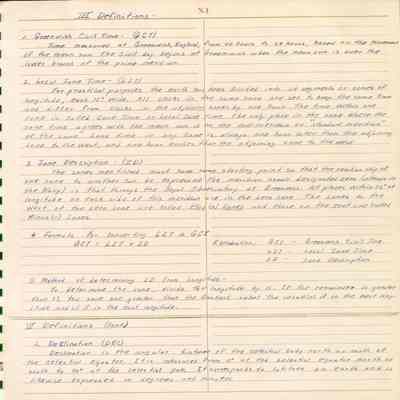 XI
III Definitions -
1. Greenwich Civil Time - (GCT)
Time measured at Greenwich, England, from 00 hours to 24 hours, based on the movement
of the mean sun. The civil day begins at Greenwich when the mean sun is over the
lower branch of the prime meridian.
2. Local Zone Time - (LZT)
For practical purposes the earth has been divided into 24 segments or zones of
longitude, each 15° wide. All clocks in the same zone are set to keep the same time
and differ from clocks in the adjacent zones by one hour. The time within one
zone is called Zone Time or Local Zone Time. The only place in the zone where the
zone time agrees with the mean sun is the
of the zone. Zone time in any zone is always one hour later than the adjoining
zone to the west, and one hour earlier than the adjoining zone to the east.
3. Zone Description - (ZD)
The zones mentioned must have some starting point so that the relationship of
one zone to another can be expressed. The meridian
is that through the Royal Observatory at Greenwich. All places within 7½° of
longitude on each side of this meridian are in the zero zone. The zones to the
West of the zero zone are called Plus (+) zones and those on the east are called
Minus (-) zones.
* Formula for converting LZT to GCT
GCT = LZT ± ZD
GCT - Greenwich Civil Time
LZT - Local Zone Time
ZD - Zone Description
Method of determining ZD from longitude -
To determine the zone, divide the longitude by 15. If the remainder is greater
than 7½ the zone is
VI Definitions (cont)
1. Declination (DEC)
Declination is the angular distance of the celestial body north or south of
the celestial equator. It is measured from 0° at the celestial equator north or
south to 90° at the celestial pole. It corresponds to latitude on Earth and is
likewise expressed in degrees and minutes.